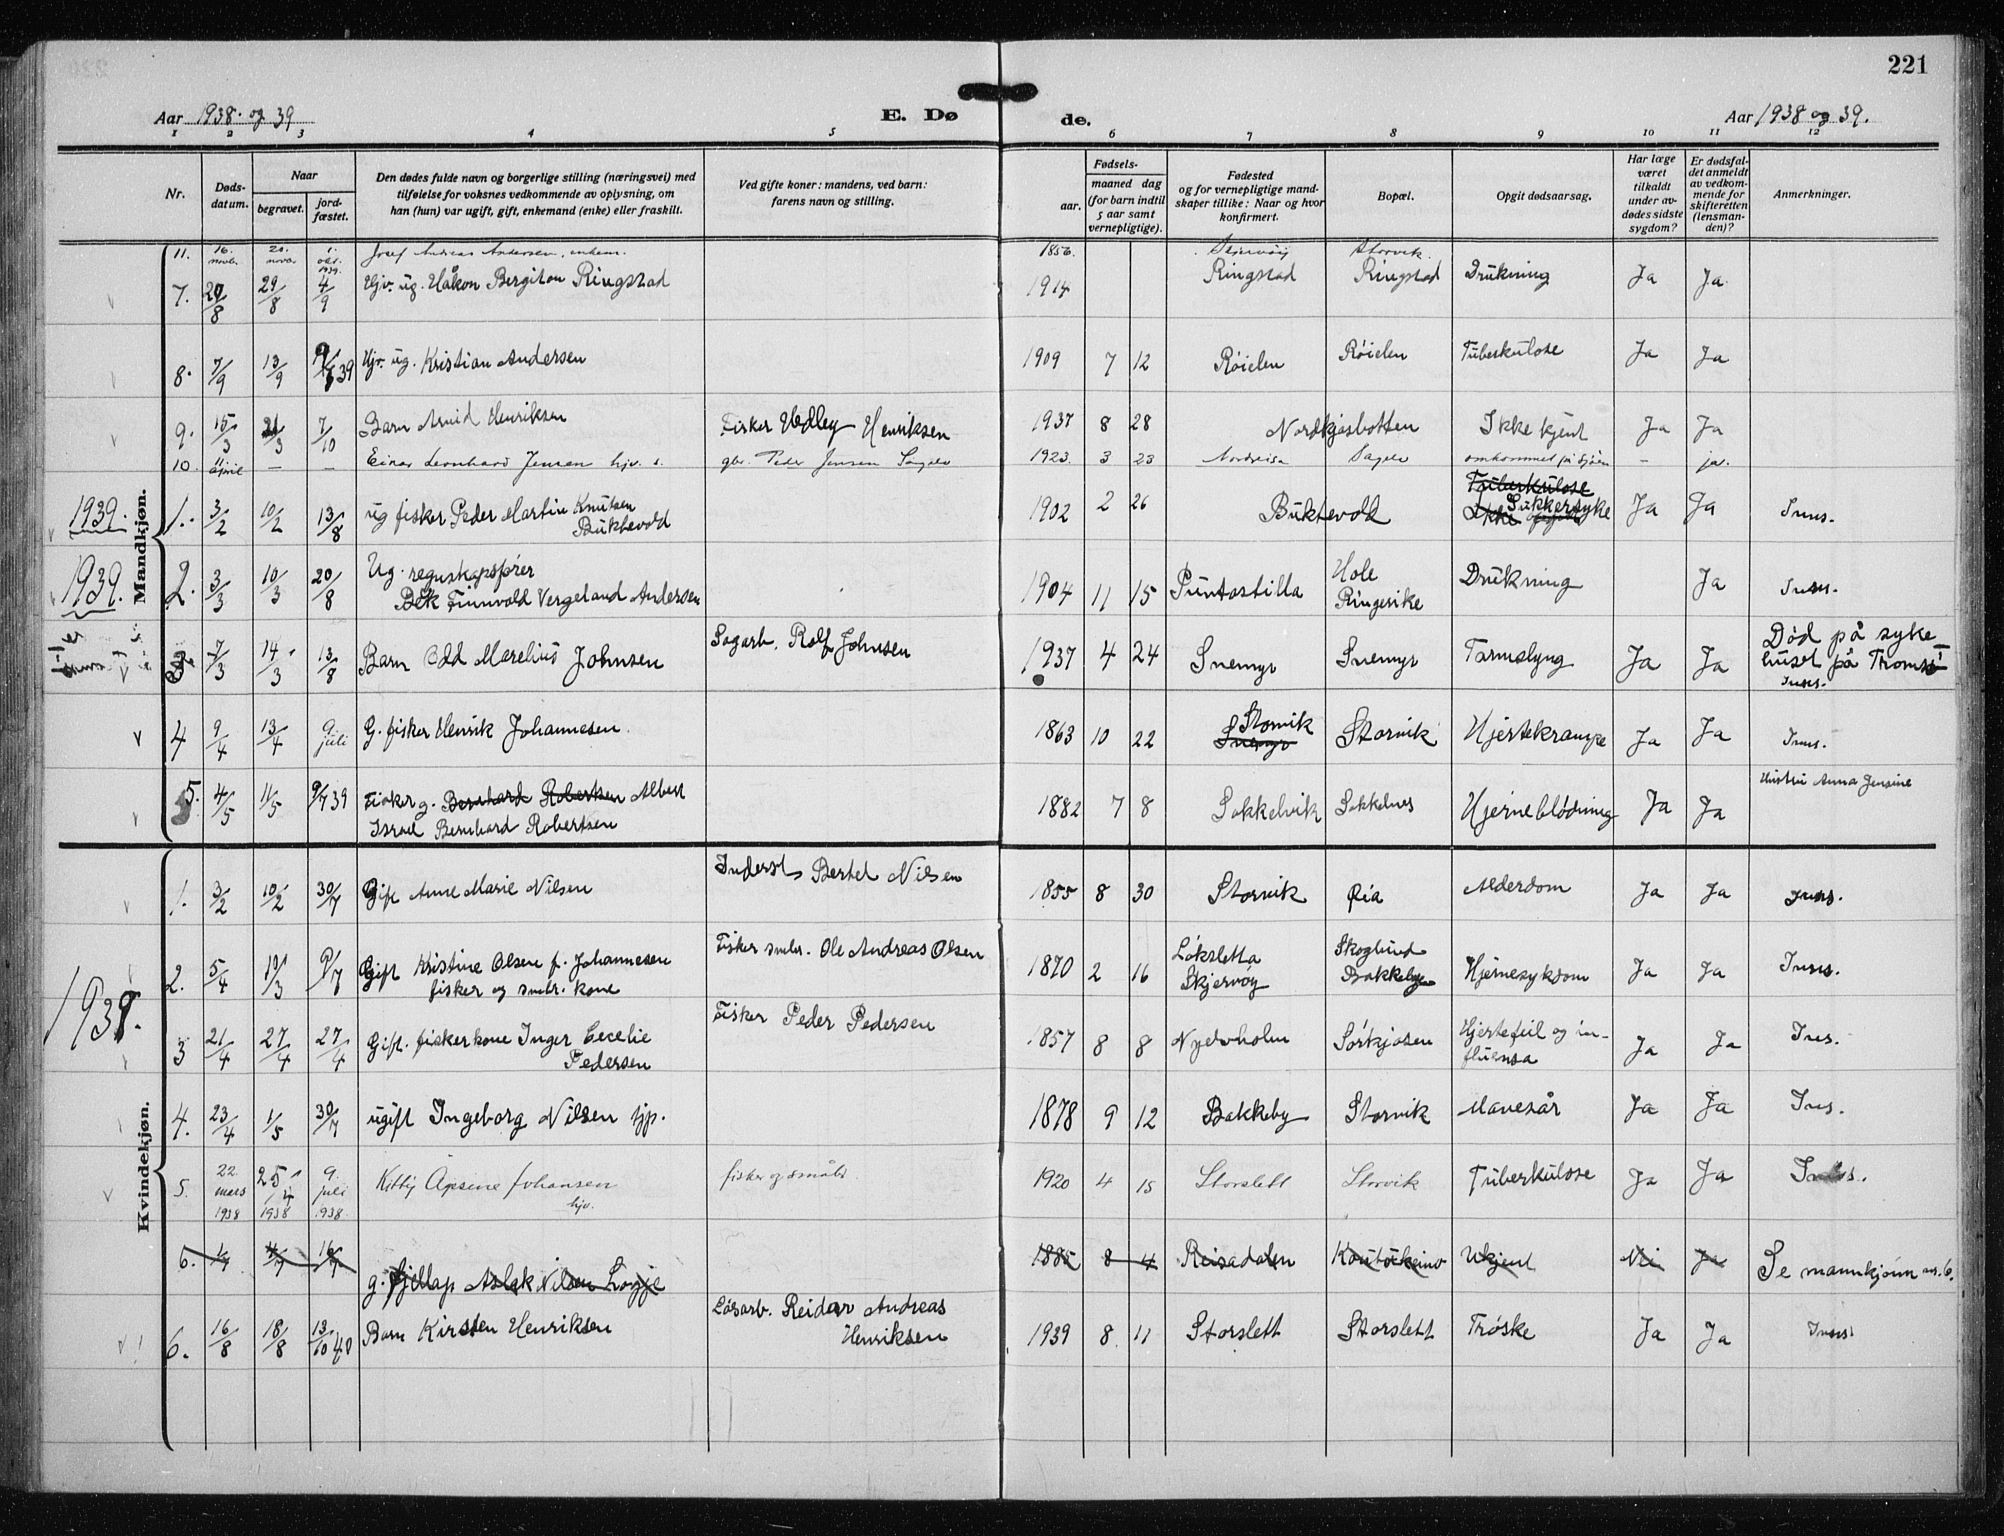 221
Aar 1938 og 39
E. Dø
de.
Aar 1938 og 39.
1 2 3 4 5 6 7 8 9 10 11 12
Nr.
Døds-
datum.
Naar
begravet.
jord-
fæstet.
Den dødes fulde navn og borgerlige stilling (næringsvei) med
tilføielse for voksnes vedkommende av oplysning, om
han (hun) var ugift, gift, enkemand (enke) eller fraskilt.
Ved gifte koner: mandens, ved barn:
farens navn og stilling.
Fødsels-
aar.
maaned dag
(for barn indtil
5 aar samt
vernepligtige).
Fødested
og for vernepligtige mand-
skaper tillike: Naar og hvor
konfirmert.
Bopæl.
Opgit dødsaarsag.
Har læge
været
tilkaldt
under av-
dødes sidste
sygdom?
Er dødsfal-
det anmeldt
av vedkom-
mende for
skifteretten
(lensman-
den)?
Anmerkninger.
Mandkjøn.
11. 16. novbr. 20. novbr. 1. okt. 1939. Josef Andreas Andersen, enkem. 1856. Skjervøy Storvik
7. 20/8 29/8 4/9 Hjv. ug. Håkon Bergiton Ringstad 1914 Ringstad Ringstad Drukning Ja Ja
8. 7/9 13/9 39 Hjv. ug. Kristian Andersen 1909 7 12 Röielen Röielen Tuberkulose Ja Ja
9. 15/3 21/3 7/10 Barn Arvid Henriksen Fisker Hedley Henriksen 1937 8 28 Nordkjosbotten Ikke kjent Ja Ja
10. 11 april — — Einar Leonhard Jensen hjv. gbr. Peder Jensen 1923. 3 23 Nordreisa omkommet på sjøen — ja.
1939.
1. 3/2 10/2 13/8 ug fisker Peder Martin Knutsen
Buktevold 1902 2 26 Buktevold Tuberkulose
Sukkersyke
Ikke Ja Ja Inns.
1939.
2. 3/3 10/3 20/8 Ug. regnskapsfører
Bek Finnvold Vergeland Andersen 1904 11 15 Puntastilla Hole
Ringerike Drukning Ja Inns.
7/3 14/3 13/8 Barn Odd Marelius Johnsen Sagarb. Rolf Johnsen 1937 4 24 Snemyr Snemyr Tarmslyng Ja Ja Död på syke-
huset på Tromsö
Inns.
4 9/4 13/4 9. juli G. fisker Henrik Johannesen. 1863 10 22 Storvik
Snemyr Storvik Hjertekrampe Ja Ja Inns.
5. 4/5 11/5 9/7 39 Fisker g. Bernhard Robertsen Albert
Israel Bernhard Robertsen 1882 7 8 Sokkelvik Sokkelnes Hjerneblödning Ja Ja Hustru Anna Jensine
Kvindekjøn.
1. 3/2 10/2 30/7 Gift Anne Marie Nilsen Inderst Bertel Nilsen 1855 8 30 Storvik Alderdom Ja Ja Inns.
1939.
2. 5/4 19/3 9/7 Gift Kristine Olsen f. Johannesen
fisker og smbr. kone Fisker smbr. Ole Andreas Olsen 1870 2 16 Löksletta
Skjervöy Skoglund
Bakkeby Hjernesykdom Ja Ja Inns.
3 21/4 27/4 27/4 Gift. fiskerkone Inger Cecelie
Pedersen Fisker Peder Pedersen 1857 8 8 Nyevoholm Sörkjosen Hjertefeil og in-
fluensa Ja Ja Inns.
4. 23/4 1/5 30/7 ugift Ingeborg Nilsen tjp. 1878 9 12 Bakkeby Storvik Mavesår Ja Ja Inns.
5. 22. mars 1938 25/4 1938 9. juli 1938. Kitty Apsine Johansen
hjv. fisker og småbr. 1920 4 15 Storslett Storvik Tuberkulose Ja Ja Inns.
6. 16/7 g. fjellap Aslak Nilsen Logje 1885 8 4 Reisadalen Kautokeino Ukjent Nei Ja Se mannkjönn nr. 6.
6. 16/8 18/8 13/10 40 Barn Kirsten Henriksen Lösarb. Reidar Andreas
Henriksen 1939 8 11 Storslett Storslett Tröske Ja Ja Inns.